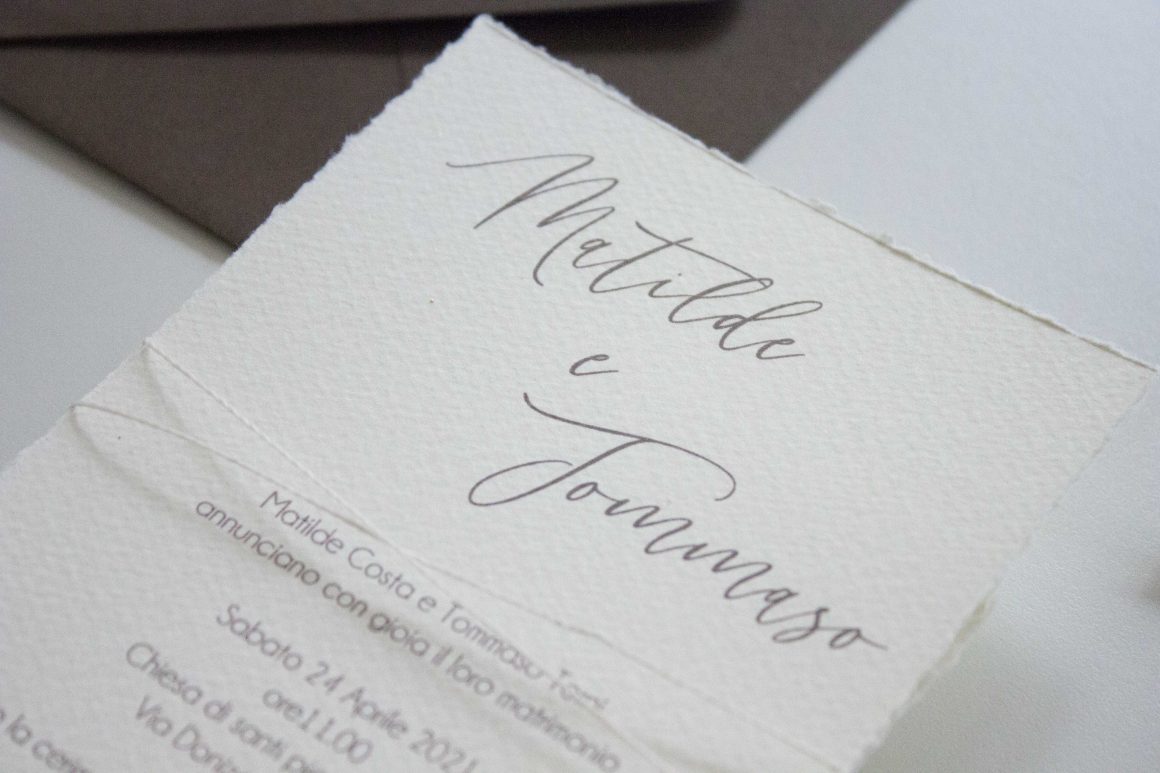 Matilde
e
Tommaso
Matilde Costa e Tommaso
annunciano con gioia il loro matrimonio
Sabato 24 Aprile 2021
ore11.00
Chiesa di santi
Via
la